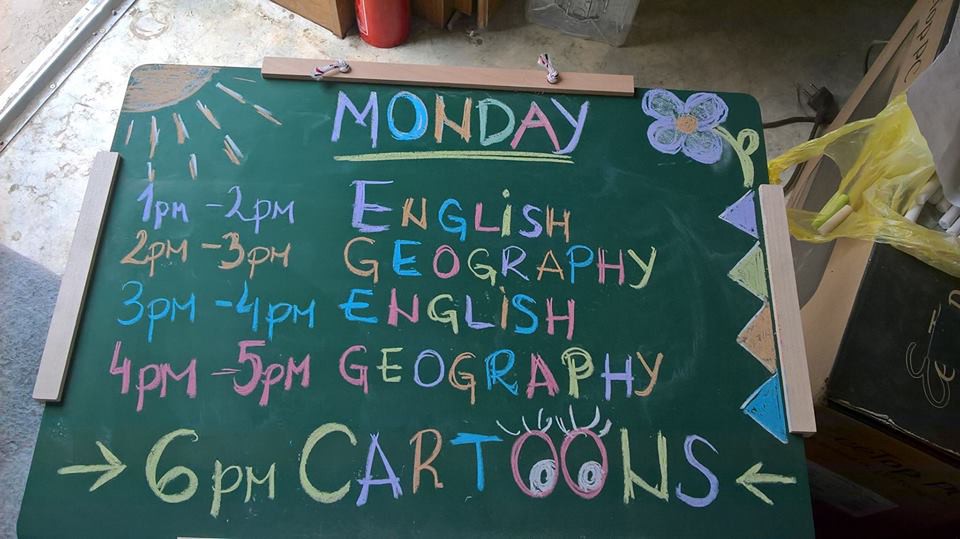 MONDAY
1pm - 2pm ENGLiSH
2pm - 3pm GEOGRAPHY
3pm - 4pm ENGLiSH
4pm - 5pm GEOGRAPHY
→ 6pm CARTOONS ←